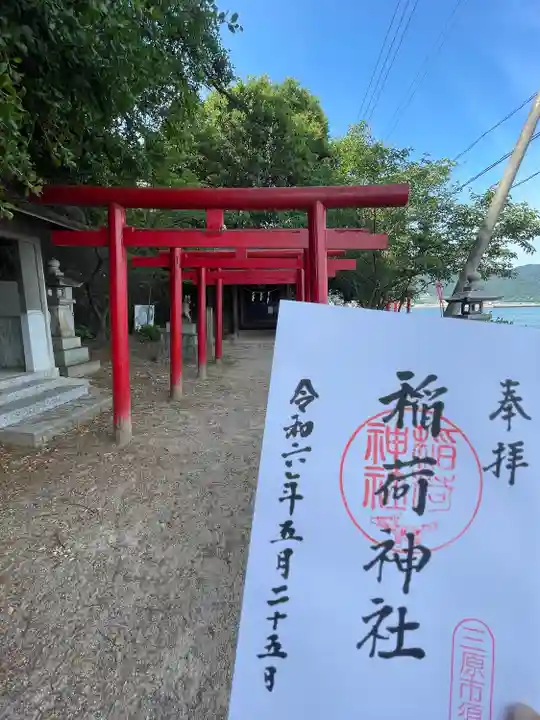 奉拝
稲荷神社
稲荷神社
三原市須
令和六年五月二十五日